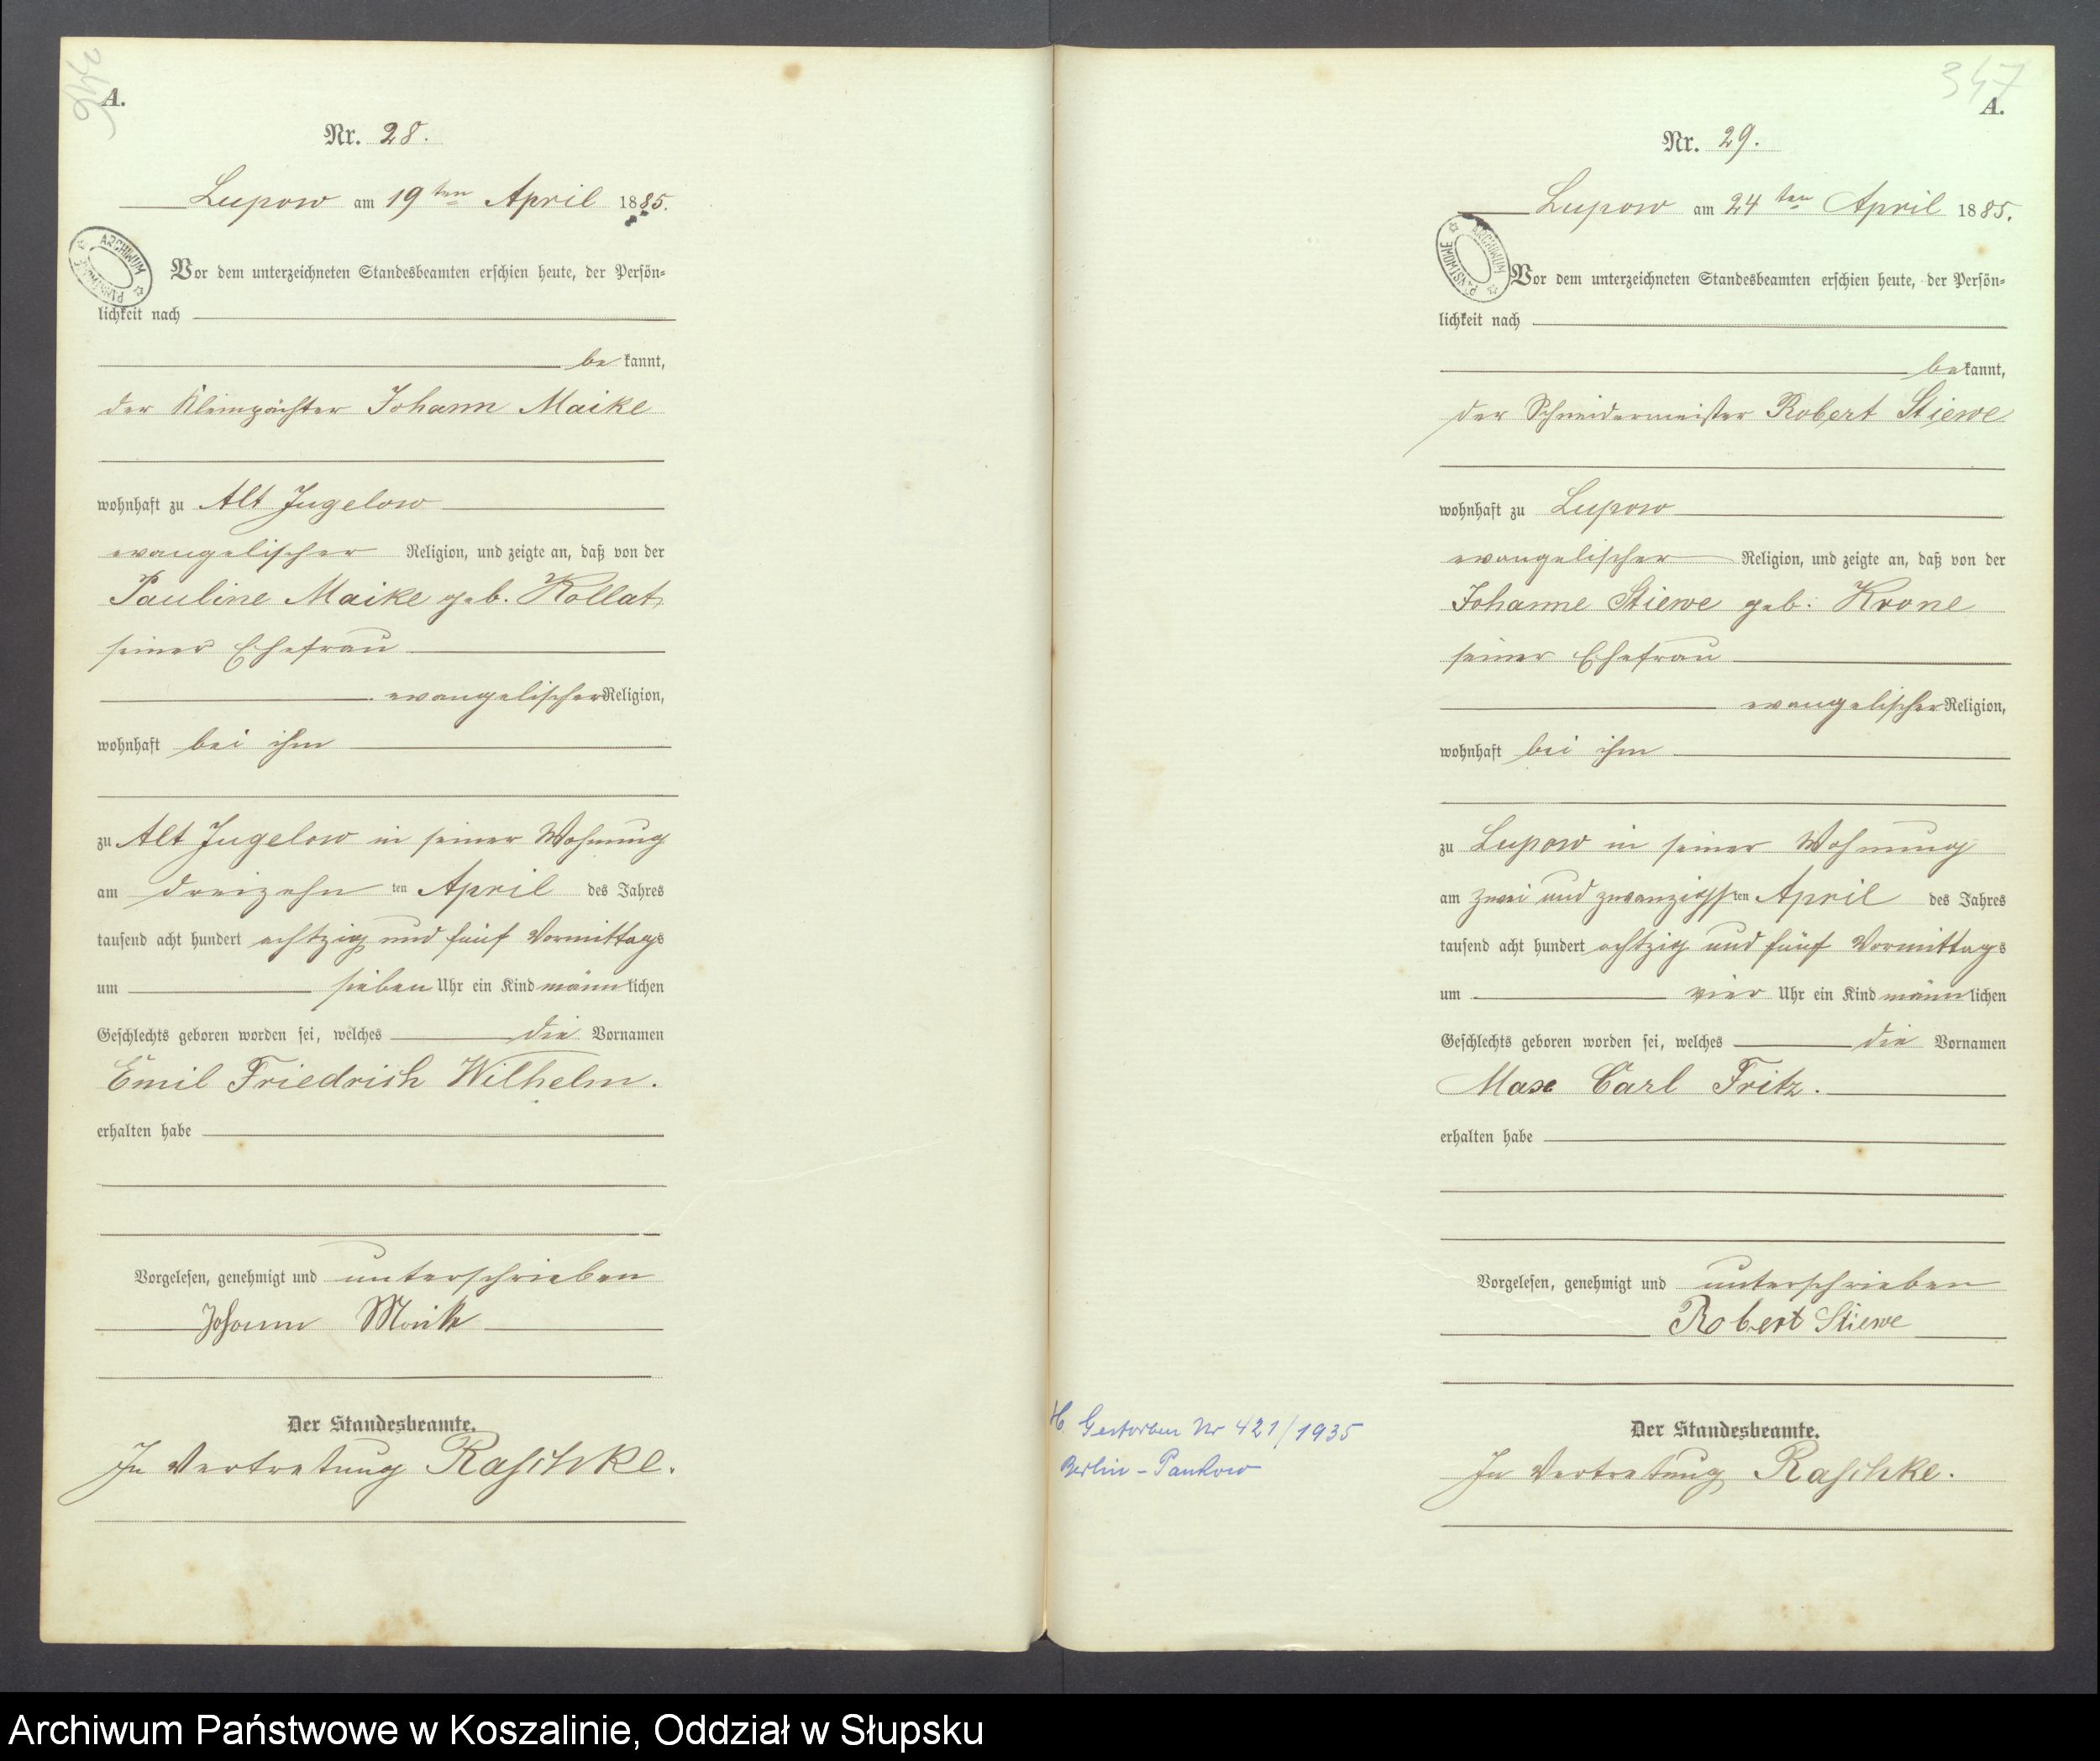 346
A.
Nr. 28.
Lupow am 19ten April 1885.
ARCHIWUM
Vor dem unterzeichneten Standesbeamten erschien heute, der Persön-
lichkeit nach
bekannt,
der Kleinpächter Johann Maike
wohnhaft zu Alt Jugelow
evangelischer Religion, und zeigte an, daß von der
Pauline Maike geb. Kollat,
seiner Ehefrau
evangelischer Religion,
wohnhaft bei ihm
zu Alt Jugelow in seiner Wohnung
am dreizehnten April des Jahres
tausend acht hundert achtzig und fünf Vormittags
um sieben Uhr ein Kind männlichen
Geschlechts geboren worden sei, welches die Vornamen
Emil Friedrich Wilhelm.
erhalten habe
Vorgelesen, genehmigt und unterschrieben
Johann Maik
Der Standesbeamte.
In Vertretung Raschke.
347
A.
Nr. 29.
Lupow am 24ten April 1885.
ARCHIWUM PAŃSTWOWE
Vor dem unterzeichneten Standesbeamten erschien heute, der Persön-
lichkeit nach
bekannt,
der Schneidermeister Robert Stiewe
wohnhaft zu Lupow
evangelischer Religion, und zeigte an, daß von der
Johanne Stiewe geb. Krone
seiner Ehefrau
evangelischer Religion,
wohnhaft bei ihm
zu Lupow in seiner Wohnung
am zwei und zwanzigsten April des Jahres
tausend acht hundert achtzig und fünf Vormittags
um vier Uhr ein Kind männlichen
Geschlechts geboren worden sei, welches die Vornamen
Max Carl Fritz.
erhalten habe
Vorgelesen, genehmigt und unterschrieben
Robert Stiewe
Der Standesbeamte.
In Vertretung Raschke.
H. Gestorben Nr 421/1935
Berlin-Pankow
Archiwum Państwowe w Koszalinie, Oddział w Słupsku